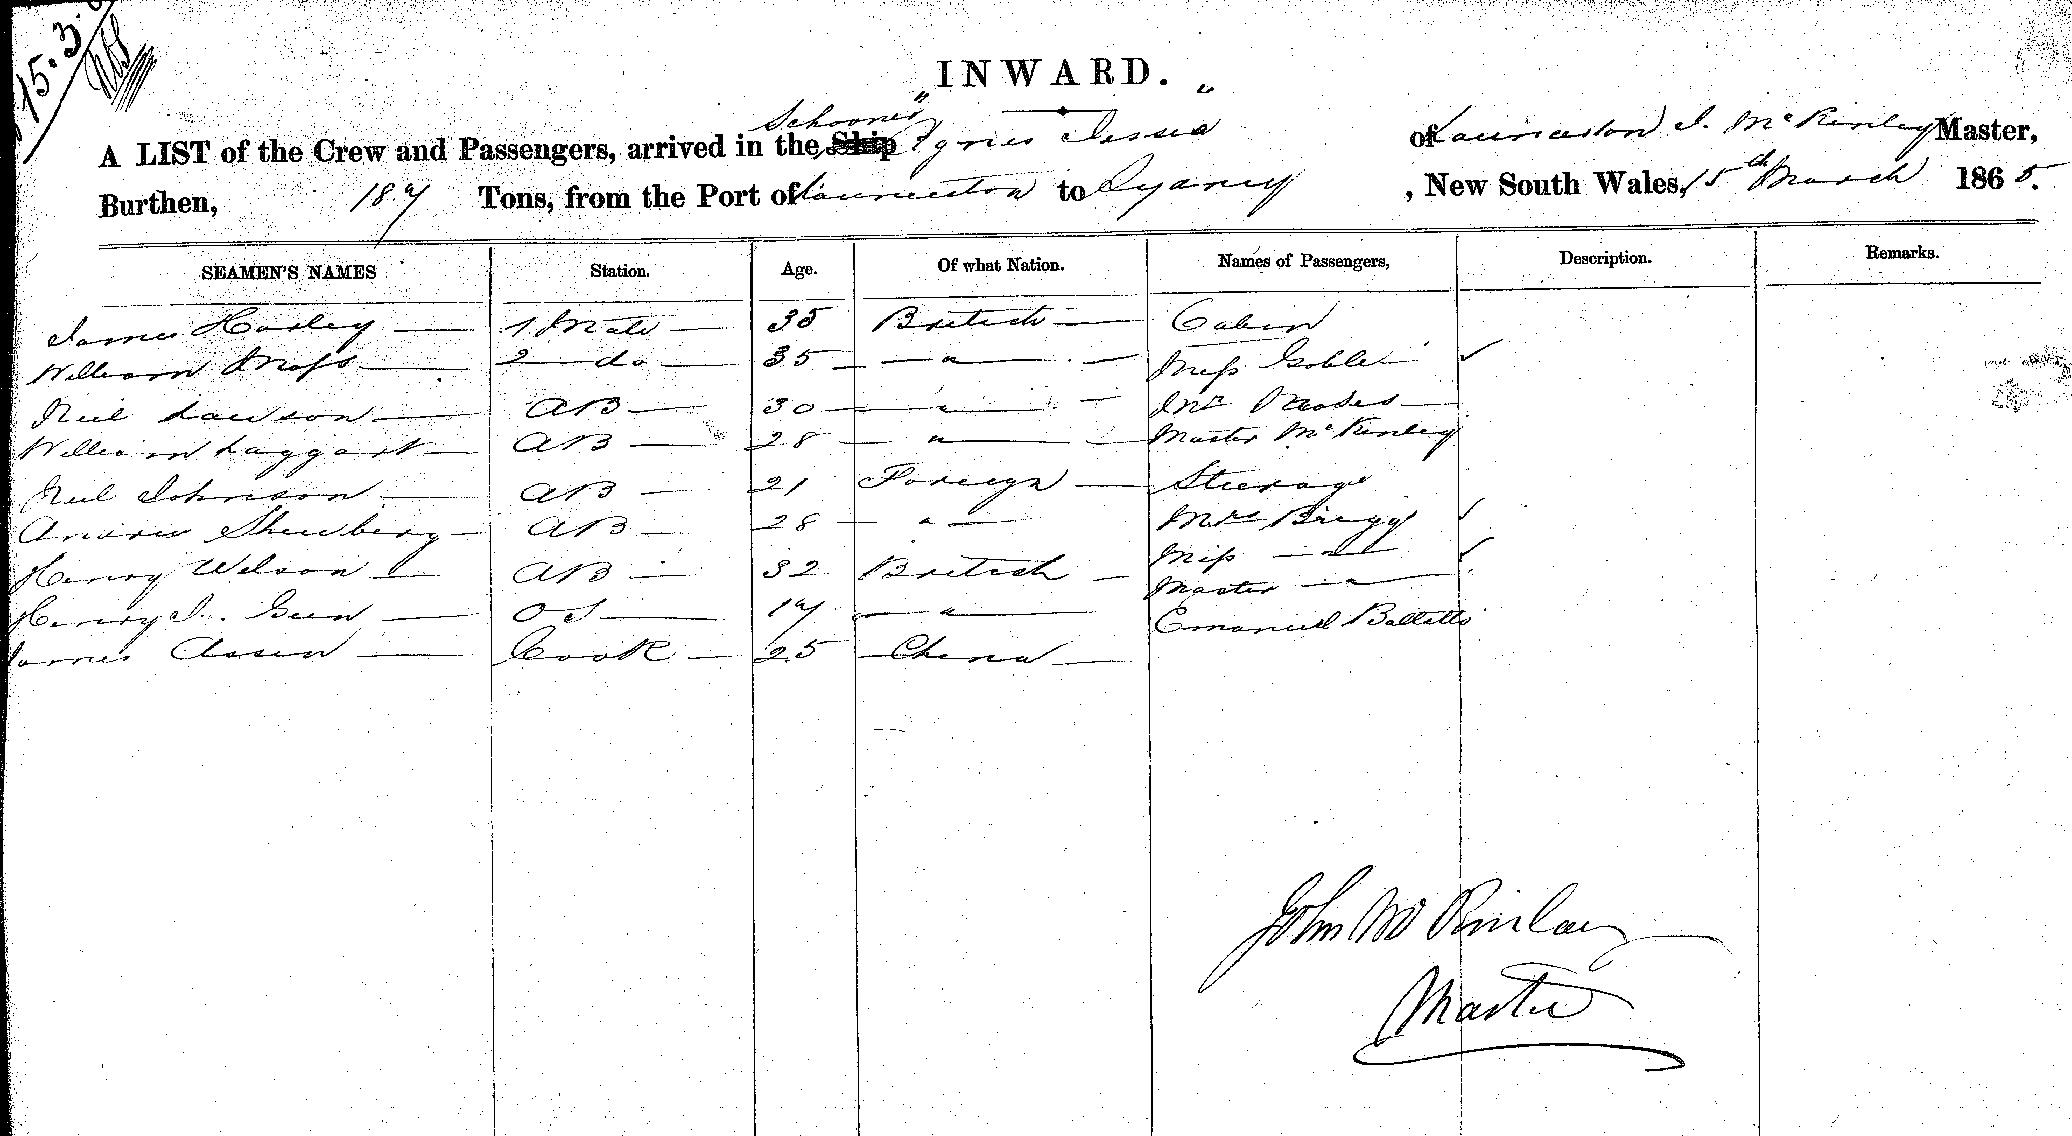 15.3.
INWARD.
A LIST of the Crew and Passengers, arrived in the Ship Schooner "Agnes Jessie" of Launceston J. McKinley Master,
Burthen, 187 Tons, from the Port of Launceston to Sydney, New South Wales, 15th March 1865.
SEAMEN'S NAMES Station. Age. Of what Nation. Names of Passengers, Description. Remarks.
James Hosley — 1 Mate — 35 British — Cabin
William Moss — 2 — do — 35 — " — Miss Goble ✓
Neil Lawson — AB — 30 — " — Mr
William Taggart — AB — 28 — " — Master McKinley
Neil Johnson — AB — 21 Foreign — Steerage
Andrew — AB — 28 — " — Mrs Bragg ✓
Henry Wilson — AB — 32 British — Miss — " — ✓
Henry J. Gun — OS — 17 — " — Master — " —
James Assen — Cook — 25 — China — Emanuel Balletto
John McKinlay
Master